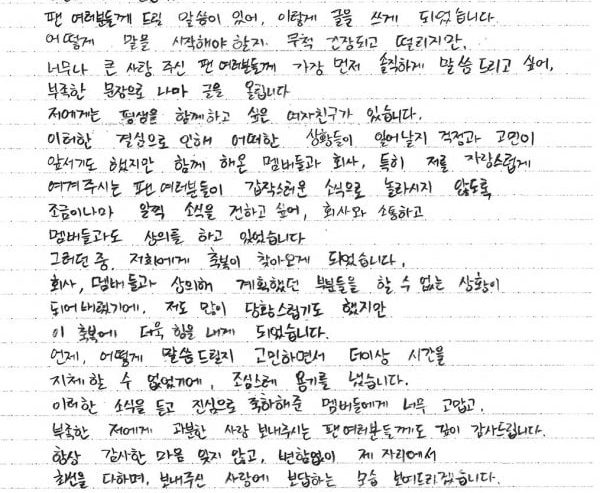 팬 여러분들께 드릴 말씀이 있어, 이렇게 글을 쓰게 되었습니다.
어떻게 말을 시작해야 할지 무척 긴장되고 떨리지만,
너무나 큰 사랑 주신 팬 여러분들께 가장 먼저 솔직하게 말씀드리고 싶어,
부족한 문장으로 나마 글을 올립니다
저에게는 평생을 함께하고 싶은 여자친구가 있습니다.
이러한 결심으로 인해 어떠한 상황들이 일어날지 걱정과 고민이
앞서기도 했지만 함께 해온 멤버들과 회사, 특히 저를 자랑스럽게
여겨주시는 팬 여러분들이 갑작스러운 소식으로 놀라시지 않도록
조금이나마 일찍 소식을 전하고 싶어, 회사와 소통하고
멤버들과도 상의를 하고 있었습니다
그러던 중, 저희에게 축복이 찾아오게 되었습니다.
회사, 멤버들과 상의해 계획했던 부분들을 할 수 없는 상황이
되어버렸기에, 저도 많이 당황스럽기도 했지만
이 축복에 더욱 힘을 내게 되었습니다.
언제, 어떻게 말씀드릴지 고민하면서 더이상 시간을
지체할 수 없었기에, 조심스레 용기를 냈습니다.
이러한 소식을 듣고 진심으로 축하해준 멤버들에게 너무 고맙고,
부족한 저에게 과분한 사랑 보내주시는 팬 여러분들께도 깊이 감사드립니다.
항상 감사한 마음 잊지 않고, 변함없이 제 자리에서
최선을 다하며, 보내주신 사랑에 보답하는 모습 보여드리겠습니다.